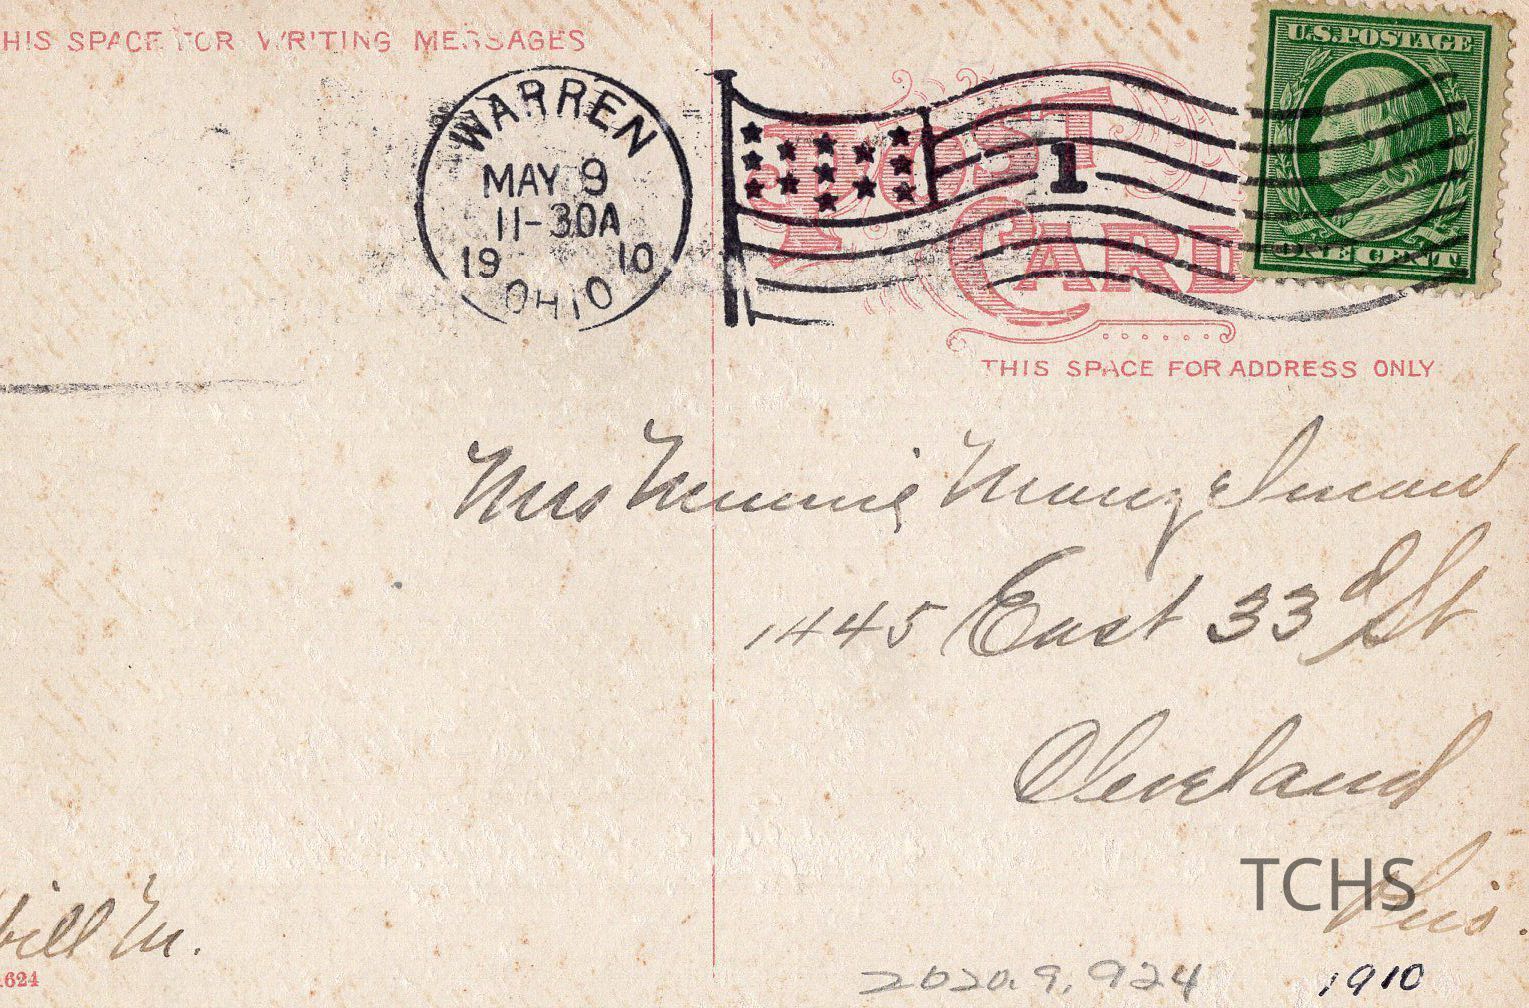 HIS SPACE FOR WRITING MESSAGES
WARREN
MAY 9
11-30A
19 10
OHIO
1
U.S. POSTAGE
ONE CENT
POST
CARD
THIS SPACE FOR ADDRESS ONLY
Mrs Minnie Manzelman
1445 East 33d St
Cleveland
Ohio.
TCHS
ill M.
1624
2020.9.924
1910